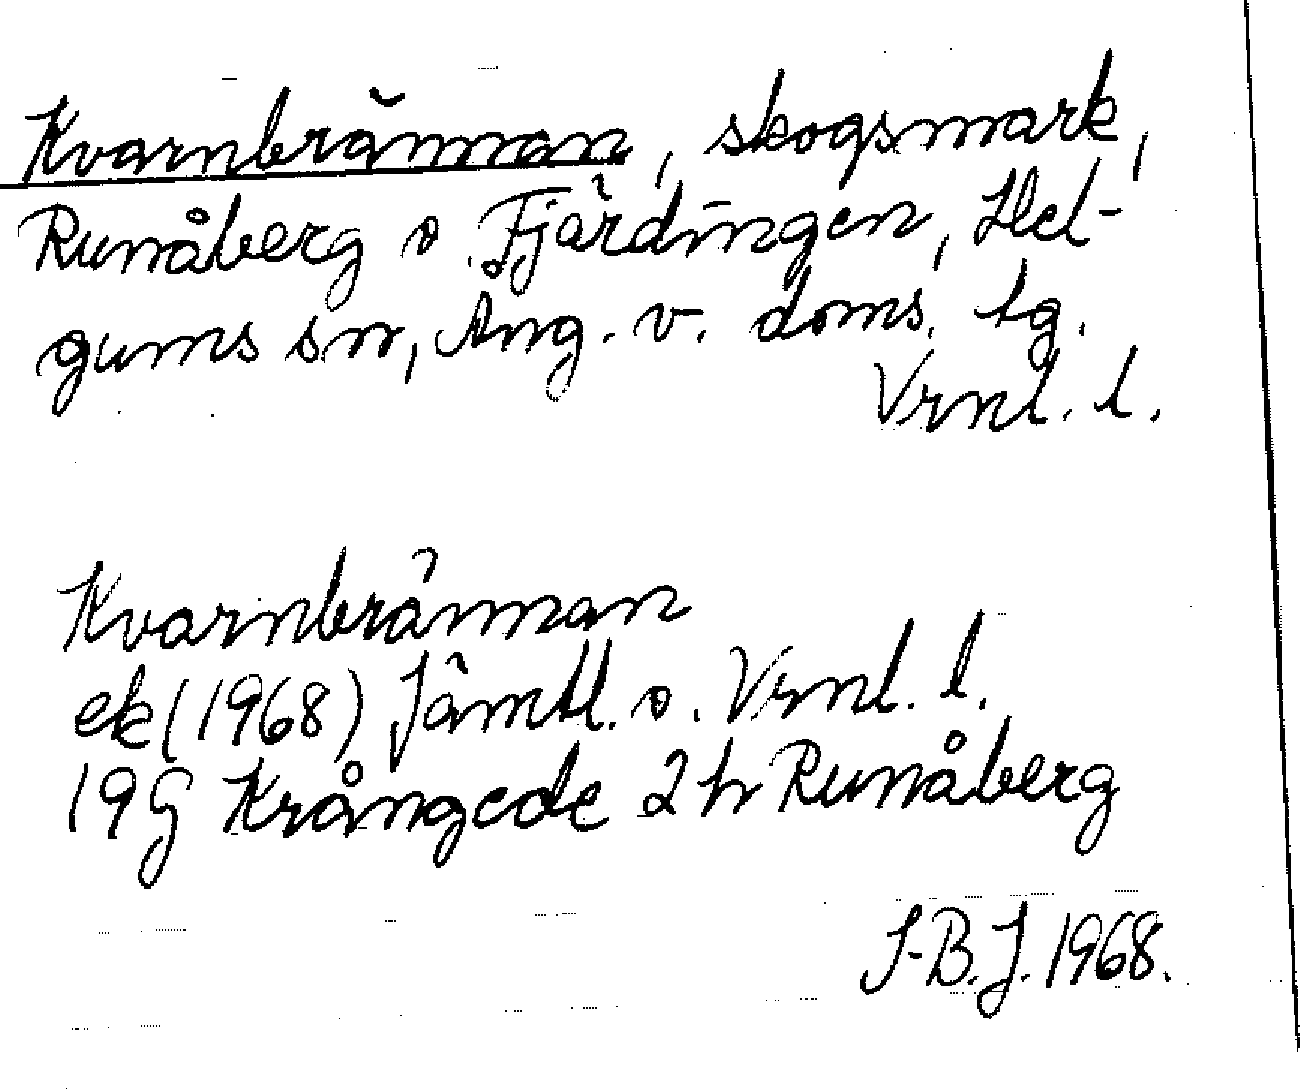 Kvarnbrännan, skogsmark,
Runåberg o. Fjärdingen, Hel-
gums sn, Ång. v. doms. tg.
Vrnl. l.
Kvarnbrännan
ek (1968) Jämtl. o. Vrnl. l.
19G Krångede 2h Runåberg
S-B.J. 1968.